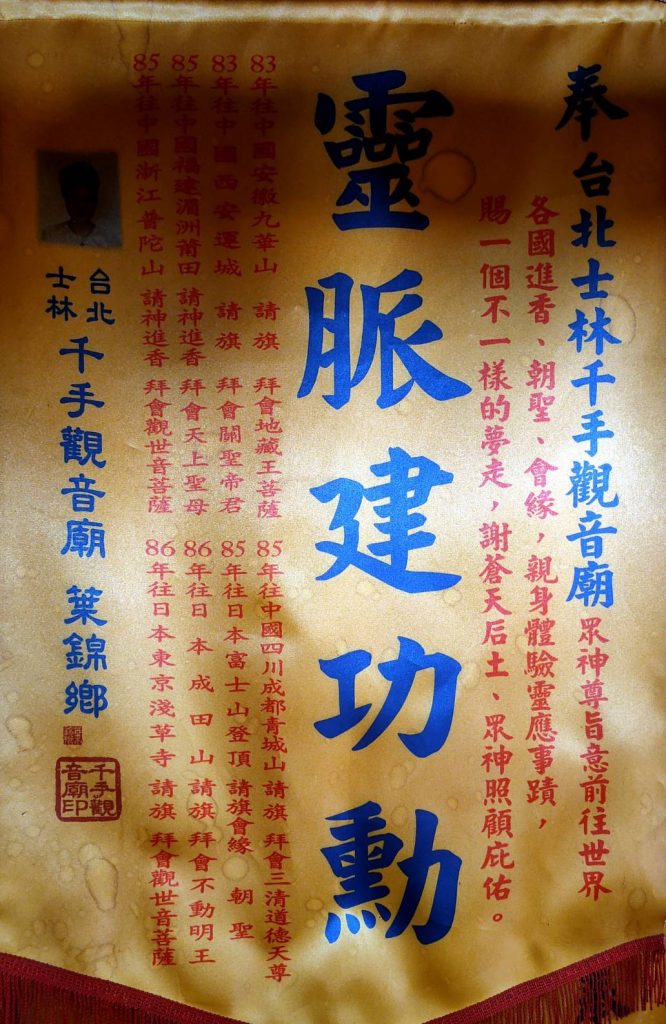 奉台北士林千手觀音廟眾神尊旨意前往世界
各國進香、朝聖、會緣，親身體驗靈應事蹟，
賜一個不一樣的夢走，謝蒼天后土、眾神照顧庇佑。
靈脈建功勳
83年往中國安徽九華山 請旗 拜會地藏王菩薩
83年往中國西安運城 請旗 拜會關聖帝君
85年往中國福建湄洲莆田 請神進香 拜會天上聖母
85年往中國浙江普陀山 請神進香 拜會觀世音菩薩
85年往中國四川成都青城山 請旗 拜會三清道德天尊
85年往日本富士山登頂 請旗會緣 朝聖
86年往日本成田山 請旗 拜會不動明王
86年往日本東京淺草寺 請旗 拜會觀世音菩薩
台北士林千手觀音廟 葉錦鄉
千手觀音廟印